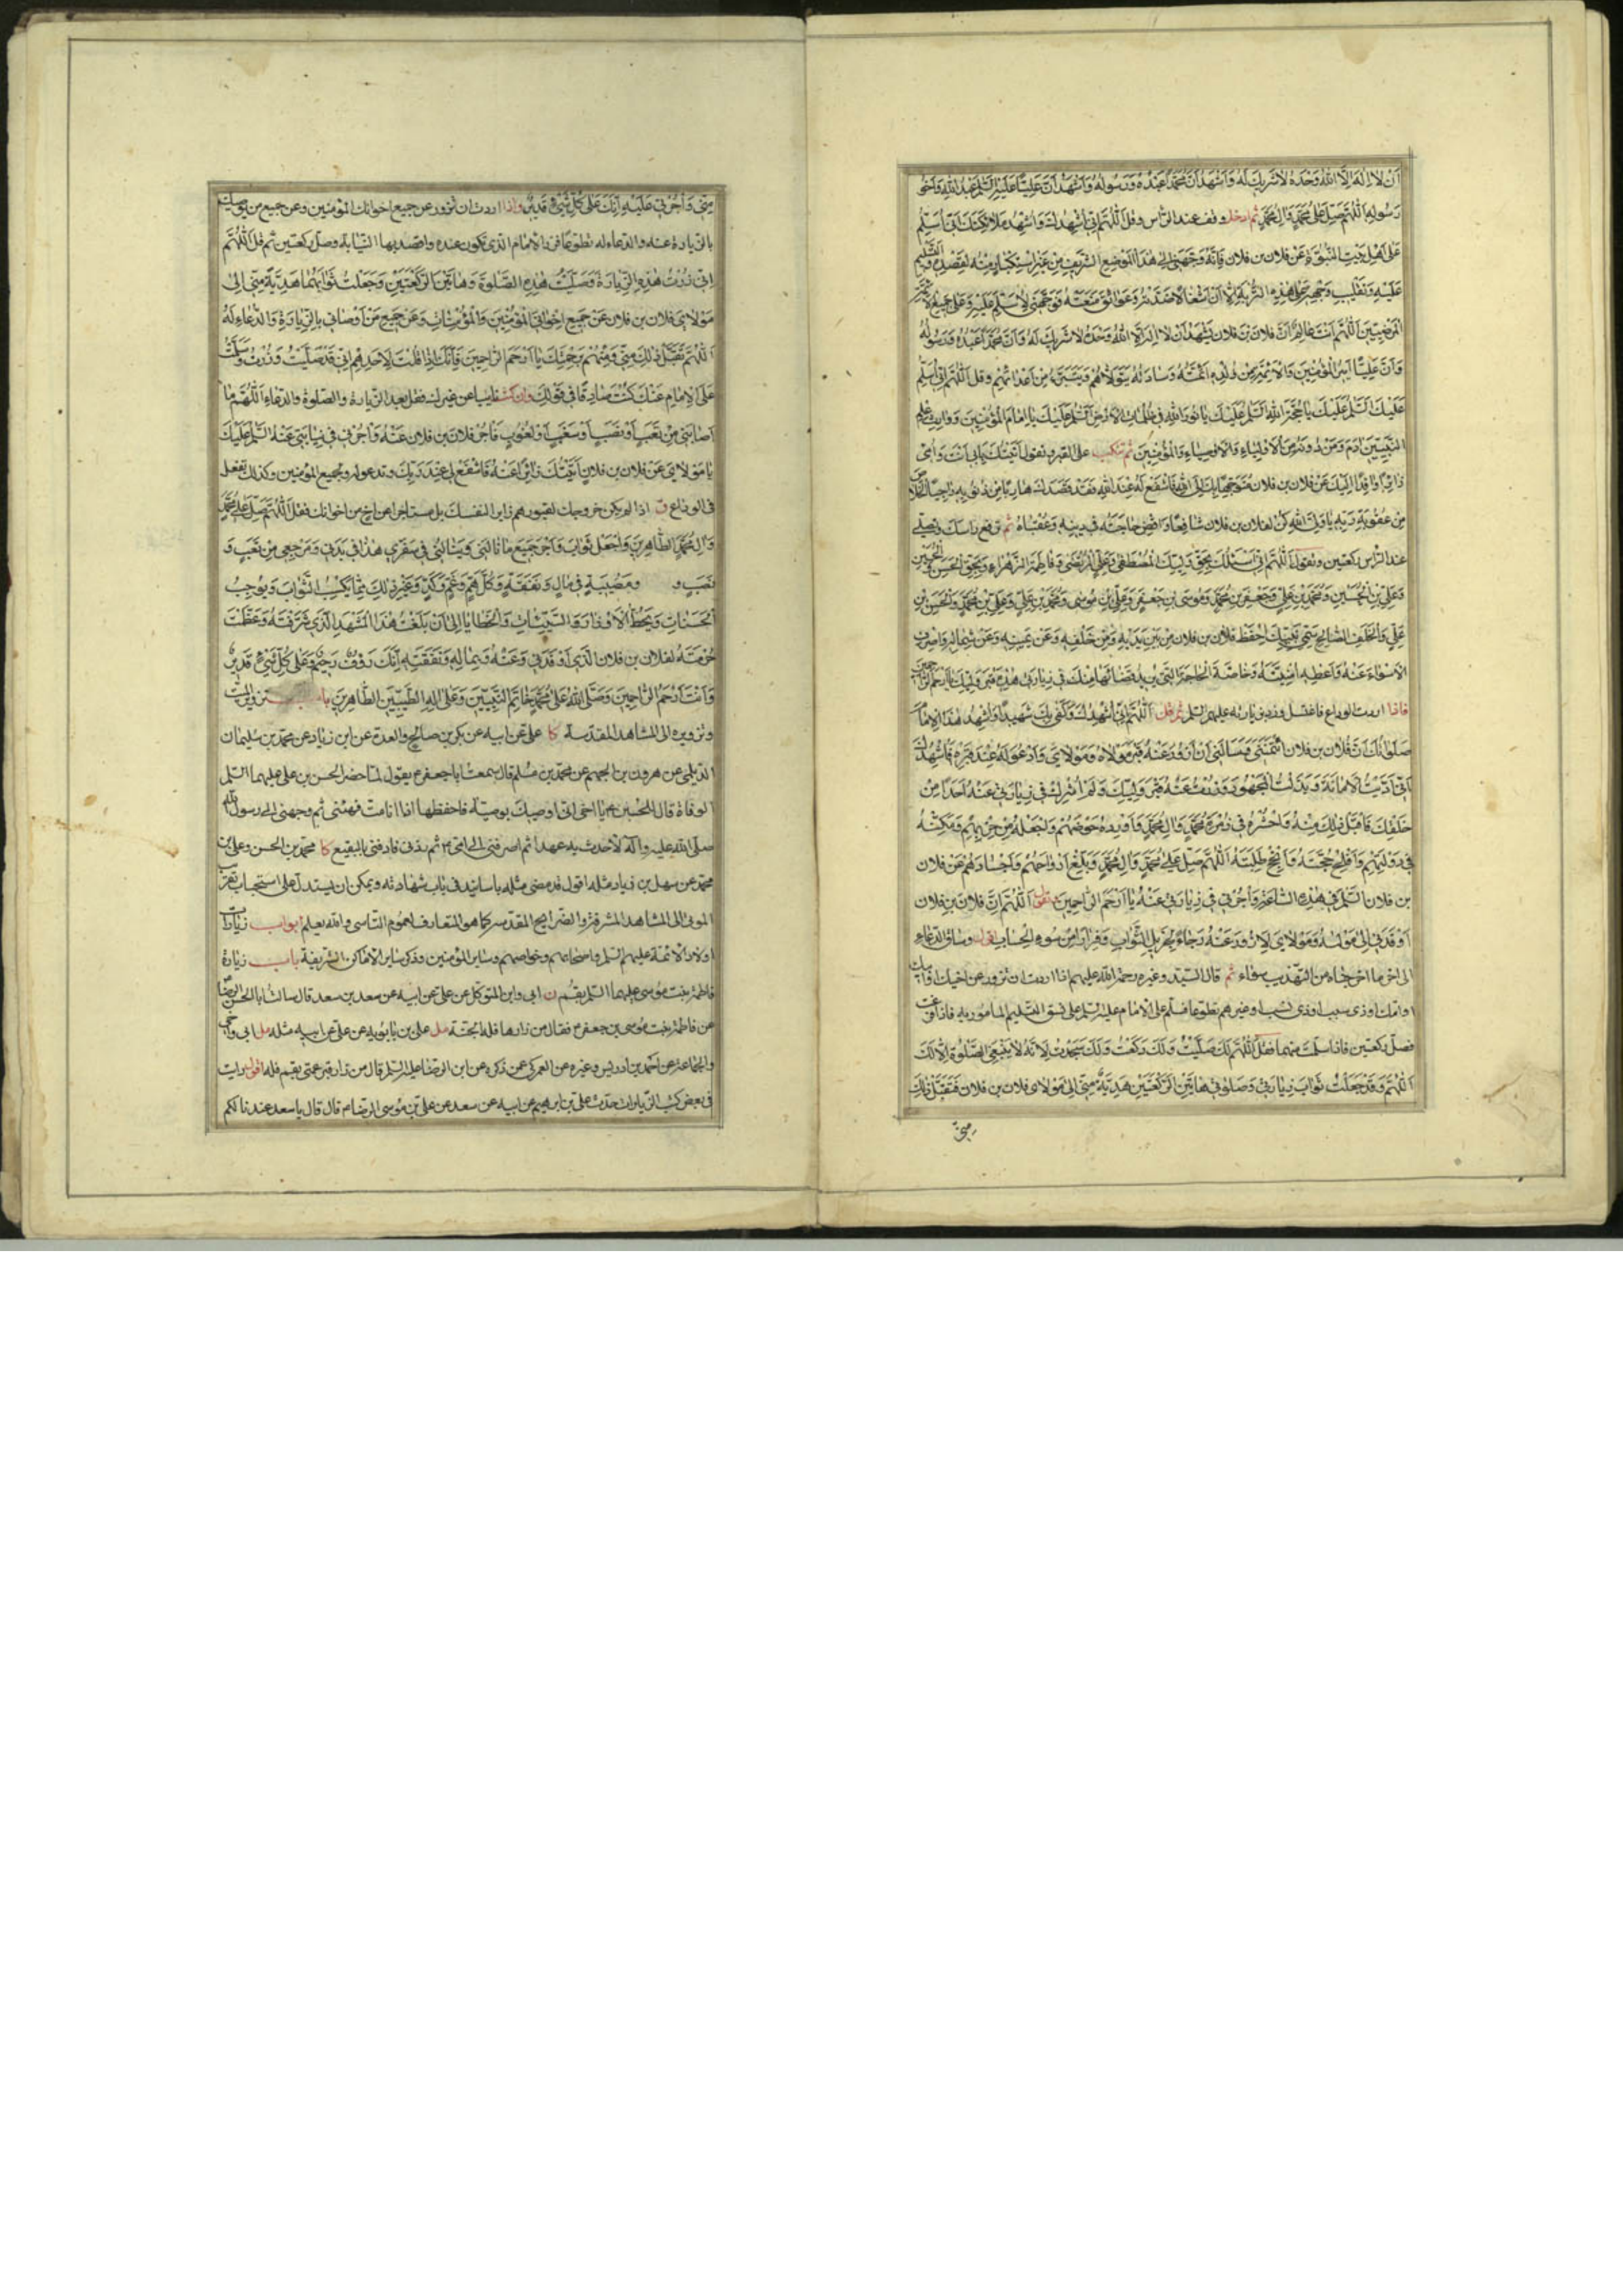 اَنْ لا اِلهَ اِلَّا اللهُ وَحْدَهُ لا شَرِيكَ لَهُ وَاَشْهَدُ اَنَّ مُحَمَّدًا عَبْدُهُ وَرَسُولُهُ وَاَشْهَدُ اَنَّ عَلِيًّا عَلَيْهِ السَّلَمُ عَبْدُ اللهِ وَاَخُو
رَسُولِهِ اَللّهُمَّ صَلِّ عَلى مُحَمَّدٍ وَآلِ مُحَمَّدٍ ثم ادخل وقف عند الرأس وقل اَللّهُمَّ اِنِّي اُشْهِدُكَ وَاُشْهِدُ مَلائِكَتَكَ اَنِّي اُسَلِّمُ
عَلى اَهْلِ بَيْتِ النُّبُوَّةِ عَنْ فلان بن فلان فَاِنَّهُ وَجَّهَنِي اِلى هذَا الْمَوْضِعِ الشَّرِيفِ مِنْ غَيْرِ اسْتِكْبَارٍ مِنْهُ لِقَصْدِهِ
عَلَيْهِ وَتَقْلِيبِ وَجْهِهِ عَلى هذِهِ التُّرْبَةِ اِلّا اَنَّ اَشْغَالًا وَعَوَائِقَ مَنَعَتْهُ فَوَجَّهَنِي لِاُسَلِّمَ عَلَيْهِ وَعَلى جَمِيعِ
الْمَرْضِيِّينَ اَللّهُمَّ اَنْتَ عَالِمٌ اَنَّ فلان بن فلان يَشْهَدُ اَنْ لا اِلهَ اِلَّا اللهُ وَحْدَهُ لا شَرِيكَ لَهُ وَاَنَّ مُحَمَّدًا عَبْدُهُ وَرَسُولُهُ
وَاَنَّ عَلِيًّا اَمِيرُ الْمُؤْمِنِينَ وَالْاَئِمَّةَ مِنْ وُلْدِهِ اَئِمَّتُهُ وَسَادَتُهُ يَتَوَلّاهُمْ وَيَتَبَرَّءُ مِنْ اَعْدَائِهِمْ وقل اَللّهُمَّ اِنِّي اُسَلِّمُ
عَلَيْكَ اَلسَّلَمُ عَلَيْكَ يَا حُجَّةَ اللهِ اَلسَّلَمُ عَلَيْكَ يَا نُورَ اللهِ فِي ظُلُمَاتِ الْاَرْضِ اَلسَّلَمُ عَلَيْكَ يَا اِمَامَ الْمُؤْمِنِينَ وَوَارِثَ عِلْمِ
النَّبِيِّينَ اٰدَمَ وَمَنْ دُونَهُ مِنَ الْاَوْلِيَاءِ وَالْاَوْصِيَاءِ وَالْمُؤْمِنِينَ ثم تنكب على القبر وتقول اَتَيْتُكَ بِاَبِي اَنْتَ وَاُمِّي
زَائِرًا وَافِدًا اِلَيْكَ عَنْ فلان بن فلان مُتَوَجِّهًا بِكَ اِلَى اللهِ فَاشْفَعْ لَهُ عِنْدَ اللهِ فَقَدْ قَصَدَكَ هَارِبًا مِنْ ذُنُوبِهِ رَاجِيًا
مِنْ عُقُوبَةِ رَبِّهِ يَا وَلِيَّ اللهِ كُنْ لفلان بن فلان شَافِعًا وَاقْضِ حَاجَتَهُ فِي دِينِهِ وَعُقْبَاهُ ثم ترفع راسك وتصلي
عند الرأس ركعتين وتقول اَللّهُمَّ اِنِّي اَسْئَلُكَ بِحَقِّ وَلِيِّكَ الْمُصْطَفى وَعَلِيٍّ الْمُرْتَضى وَفَاطِمَةَ الزَّهْرَاءِ وَبِحَقِّ الْحَسَنِ وَالْحُسَيْنِ
وَعَلِيِّ بْنِ الْحُسَيْنِ وَمُحَمَّدِ بْنِ عَلِيٍّ وَجَعْفَرِ بْنِ مُحَمَّدٍ وَمُوسَى بْنِ جَعْفَرٍ وَعَلِيِّ بْنِ مُوسى وَمُحَمَّدِ بْنِ عَلِيٍّ وَعَلِيِّ بْنِ مُحَمَّدٍ وَالْحَسَنِ بْنِ
عَلِيٍّ وَالْخَلَفِ الصَّالِحِ سَمِيِّ نَبِيِّكَ احْفَظْ فلان بن فلان مِنْ بَيْنِ يَدَيْهِ وَمِنْ خَلْفِهِ وَعَنْ يَمِينِهِ وَعَنْ شِمَالِهِ وَاصْرِفِ
الْاَسْوَاءَ عَنْهُ وَاَعْطِهِ اُمْنِيَّتَهُ وَخَاصَّةَ الْحَاجَةِ الَّتِي يُرِيدُ قَضَائَهَا مِنْكَ فِي زِيَارَتِي هذِهِ قَبْرَ وَلِيِّكَ يَا اَرْحَمَ الرَّاحِمِينَ
فاذا اردت الوداع فاغتسل وزر زيارته عليهم السلم ثم قل اَللّهُمَّ اِنِّي اُشْهِدُكَ وَكَفى بِكَ شَهِيدًا وَاُشْهِدُ هذَا الْاِمَامَ
صَلَوَاتُكَ اَنَّ فلان بن فلان ائْتَمَنَنِي وَسَأَلَنِي اَنْ اَزُورَ عَنْهُ قَبْرَ مَوْلاهُ وَمَوْلايَ وَاَدْعُوَ لَهُ عِنْدَ قَبْرِهِ فَاَشْهَدُكَ
اَنِّي اَدَّيْتُ الْاَمَانَةَ وَبَذَلْتُ الْمَجْهُودَ وَزُرْتُ عَنْهُ قَبْرَ وَلِيِّكَ وَلَمْ اُشْرِكْ فِي زِيَارَتِي عَنْهُ اَحَدًا مِنْ
خَلْقِكَ فَاقْبَلْ ذلِكَ مِنْهُ وَاحْشُرْهُ فِي زُمْرَةِ مُحَمَّدٍ وَآلِ مُحَمَّدٍ وَاَوْرِدْهُ حَوْضَهُمْ وَاجْعَلْهُ مِنْ حِزْبِهِمْ وَمَكِّنْهُ
فِي دَوْلَتِهِمْ وَاَفْلِحْ حُجَّتَهُ وَاَنْجِحْ طَلِبَتَهُ اَللّهُمَّ صَلِّ عَلى مُحَمَّدٍ وَآلِ مُحَمَّدٍ وَبَلِّغْ اَرْوَاحَهُمْ وَاَجْسَادَهُمْ عَنْ فلان
بن فلان السَّلَمَ فِي هذِهِ السَّاعَةِ وَاْجُرْنِي فِي زِيَارَتِي عَنْهُ يَا اَرْحَمَ الرَّاحِمِينَ وتقول اَللّهُمَّ اِنَّ فلان بن فلان
اَوْفَدَنِي اِلى مَوْلاهُ وَمَوْلايَ لِاَزُورَ عَنْهُ رَجَاءً لِجَزِيلِ الثَّوَابِ وَفِرَارًا مِنْ سُوءِ الْحِسَابِ اقول وساق الدعاء
الى اخر ما اخرجناه من التهذيب سواء ثم قال السيد وغيره رحمة الله عليهم اذا اردت ان تزور عن اخيك او ابيك
او امك او ذي سبب او ذي نسب او غيرهم تطوعا فسلم على الامام عليه السلم على نسق التسليم المامور به فاذا فرغت
فصل ركعتين فاذا سلمت منهما فقل اَللّهُمَّ لَكَ صَلَّيْتُ وَلَكَ رَكَعْتُ وَلَكَ سَجَدْتُ لِاَنَّهُ لا يَنْبَغِي الصَّلوةُ اِلّا لَكَ
اَللّهُمَّ وَقَدْ جَعَلْتُ ثَوَابَ زِيَارَتِي وَصَلاتِي فِي هَاتَيْنِ الرَّكْعَتَيْنِ هَدِيَّةً مِنِّي اِلى مَوْلايَ فلان بن فلان فَتَقَبَّلْ ذلِكَ
مني
مِنِّي وَاْجُرْنِي عَلَيْهِ اِنَّكَ عَلى كُلِّ شَيْءٍ قَدِيرٌ واذا اردت ان تزور عن جميع اخوانك المؤمنين وعن جميع من يوصيك
بالزيارة عنه والدعاء له تطوعا فزر الامام الذي تكون عنده واقصد بها النيابة وصل ركعتين ثم قل اَللّهُمَّ
اِنِّي زُرْتُ هذِهِ الزِّيَارَةَ وَصَلَّيْتُ هذِهِ الصَّلوةَ وَهَاتَيْنِ الرَّكْعَتَيْنِ وَجَعَلْتُ ثَوَابَهُمَا هَدِيَّةً مِنِّي اِلى
مَوْلايَ فلان بن فلان عَنْ جَمِيعِ اِخْوَانِيَ الْمُؤْمِنِينَ وَالْمُؤْمِنَاتِ وَعَنْ جَمِيعِ مَنْ اَوْصَانِي بِالزِّيَارَةِ وَالدُّعَاءِ لَهُ
اَللّهُمَّ تَقَبَّلْ ذلِكَ مِنِّي وَمِنْهُمْ بِرَحْمَتِكَ يَا اَرْحَمَ الرَّاحِمِينَ فَاِنَّكَ اِذَا قُلْتَ لِاَحَدِهِمْ اِنِّي قَدْ صَلَّيْتُ وَزُرْتُ وَسَلَّمْتُ
عَلَى الْاِمَامِ عَنْكَ كُنْتَ صَادِقًا فِي قَوْلِكَ وان كنت نايبا عن غيرك فقل بعد الزيارة والصلوة والدعاء اَللّهُمَّ مَا
اَصَابَنِي مِنْ تَعَبٍ اَوْ نَصَبٍ اَوْ سَغَبٍ اَوْ لُغُوبٍ فَاْجُرْ فلان بن فلان عَنْهُ وَاْجُرْنِي فِي نِيَابَتِي عَنْهُ اَلسَّلَمُ عَلَيْكَ
يَا مَوْلايَ عَنْ فلان بن فلان اَتَيْتُكَ زَائِرًا عَنْهُ فَاشْفَعْ لِي عِنْدَ رَبِّكَ وتدعو له ولجميع المؤمنين وكذلك تفعل
في الوداع ق اذا لم يكن خروجك لقبورهم زايرا لنفسك بل مستاجرا عن اخ من اخوانك فقل اَللّهُمَّ صَلِّ عَلى مُحَمَّدٍ
وَآلِ مُحَمَّدٍ الطَّاهِرِينَ وَاجْعَلْ ثَوَابَ وَاَجْرَ جَمِيعِ مَا نَالَنِي وَيَنَالُنِي فِي سَفَرِي هذَا فِي بَدَنِي وَمَرْجِعِي مِنْ تَعَبٍ وَ
نَصَبٍ وَ وَمُصِيبَةٍ فِي مَالٍ وَنَفَقَةٍ وَكُلَّ هَمٍّ وَغَمٍّ وَكَدٍّ وَغَيْرِ ذلِكَ مِمَّا يُكْسِبُ الثَّوَابَ وَيُوجِبُ
الْحَسَنَاتِ وَيَحُطُّ الْاَوْزَارَ وَالسَّيِّئَاتِ وَالْخَطَايَا اِلى اَنْ بَلَغْتُ هذَا الْمَشْهَدَ الَّذِي شَرَّفْتَهُ وَعَظَّمْتَ
حُرْمَتَهُ لفلان بن فلان الَّذِي اَوْفَدَنِي وَعَنْهُ وَبِمَالِهِ وَنَفَقَتِهِ اِنَّكَ رَؤُفٌ رَحِيمٌ وَعَلى كُلِّ شَيْءٍ قَدِيرٌ
وَاَنْتَ اَرْحَمُ الرَّاحِمِينَ وَصَلَّى اللهُ عَلى مُحَمَّدٍ خَاتَمِ النَّبِيِّينَ وَعَلى الِهِ الطَّيِّبِينَ الطَّاهِرِينَ باب تزوير الميت
وتزويره الى المشاهد المقدسة كا علي عن ابيه عن بكر بن صالح والعدة عن ابن زياد عن محمد بن سليمان
الديلمي عن هرون بن الجهم عن محمد بن مسلم قال سمعت ابا جعفر ع يقول لما حضر الحسن بن علي عليهما السلم
الوفاة قال للحسين ع يا اخي اني اوصيك بوصية فاحفظها اذا انا مت فهيئني ثم وجهني الى رسول الله
صلى الله عليه وآله لاحدث به عهدا ثم اصرفني الى امي ثم ردني فادفني بالبقيع كا محمد بن الحسن وعلي بن
محمد عن سهل بن زياد مثله اقول قد مضى مثله باسانيد في باب شهادته ويمكن ان يستدل على استحباب تقريب
الموتى الى المشاهد المشرفة والضرايح المقدسة كما هو المتعارف لعموم التاسي والله يعلم ابواب زيارات
اولاد الائمة عليهم السلم واصحابهم وخواصهم وساير المؤمنين وذكر ساير الاماكن الشريفة باب زيارة
فاطمة بنت موسى عليهما السلم بقم ن ابي وابن المتوكل عن علي عن ابيه عن سعد بن سعد قال سالت ابا الحسن الرضا
عن فاطمة بنت موسى بن جعفر ع فقال من زارها فله الجنة مل علي بن بابويه عن علي عن ابيه مثله مل ابي واخي
والجماعة عن احمد بن ادريس وغيره عن العمركي عمن ذكره عن ابن الرضا عليه السلم قال من زار قبر عمتي بقم فله اقول رايت
في بعض كتب الزيارات حدث علي بن ابرهيم عن ابيه عن سعد عن علي بن موسى الرضا ع قال قال يا سعد عندنا لكم